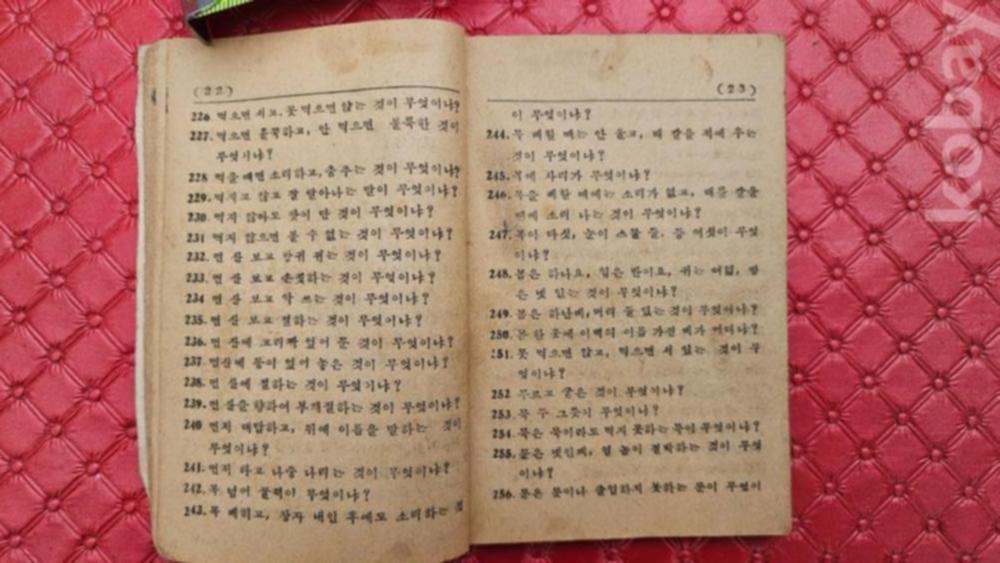 (22)
226 먹으면 서고, 못 먹으면 앉는 것이 무엇이냐?
227. 먹으면 홀쭉하고, 안 먹으면 불룩한 것이
무엇이냐?
228 먹을때면 소리하고, 춤추는 것이 무엇이냐?
229. 먹지고 않고 잘 달아나는 말이 무엇이냐?
230. 먹지 않아도 맛이 단 것이 무엇이냐?
231 먹지 않으면 볼 수 없는 것이 무엇이냐?
232. 먼 산 보고 방귀 뀌는 것이 무엇이냐?
233. 먼 산 보고 손짓하는 것이 무엇이냐?
234 먼 산 보고 악 쓰는 것이 무엇이냐?
235. 먼 산 보고 절하는 것이 무엇이냐?
236. 먼 산에 고리짝 엎어 둔 것이 무엇이냐?
237. 먼산에 동이 엎어 놓은 것이 무엇이냐?
238. 먼 산에 절하는 것이 무엇이냐?
239. 먼 산을 향하여 부개질하는 것이 무엇이냐?
240 먼저 대답하고, 뒤에 이름을 말하는 것이
무엇이냐?
241. 먼저 하고 나중 나리는 것이 무엇이냐?
242. 목 넘어 꿀떡이 무엇이냐?
243. 목 베히고, 장사 내인 후에도 소리하는 것
(23)
이 무엇이냐?
244. 목 베힐 때는 안 울고, 배 갈을 적에 우는
것이 무엇이냐?
245. 목에 사리가 무엇이냐?
246. 목을 베힐 때에는 소리가 없고, 배를 갈을
때에 소리 나는 것이 무엇이냐?
247. 목이 다섯, 눈이 스물 둘, 등 여섯이 무엇
이냐?
248. 몸은 하나요, 입은 반이요, 귀는 여덟, 발
은 넷 있는 것이 무엇이냐?
249. 몸은 하난데, 머리 둘 있는 것이 무엇이냐?
250. 몬 한 곳에 이백의 이름 가진 데가 어데냐?
251. 못 먹으면 앉고, 먹으면 서 있는 것이 무
엇이냐?
252 무르고 좋은 것이 무엇이냐?
253. 묵 두 그릇이 무엇이냐?
254. 묵은 묵이라도 먹지 못하는 묵이 무엇이냐?
255. 문은 넷인데, 한 놈이 결박하는 것이 무엇
이냐?
256. 문은 문이나 출입하지 못하는 문이 무엇이
kobay